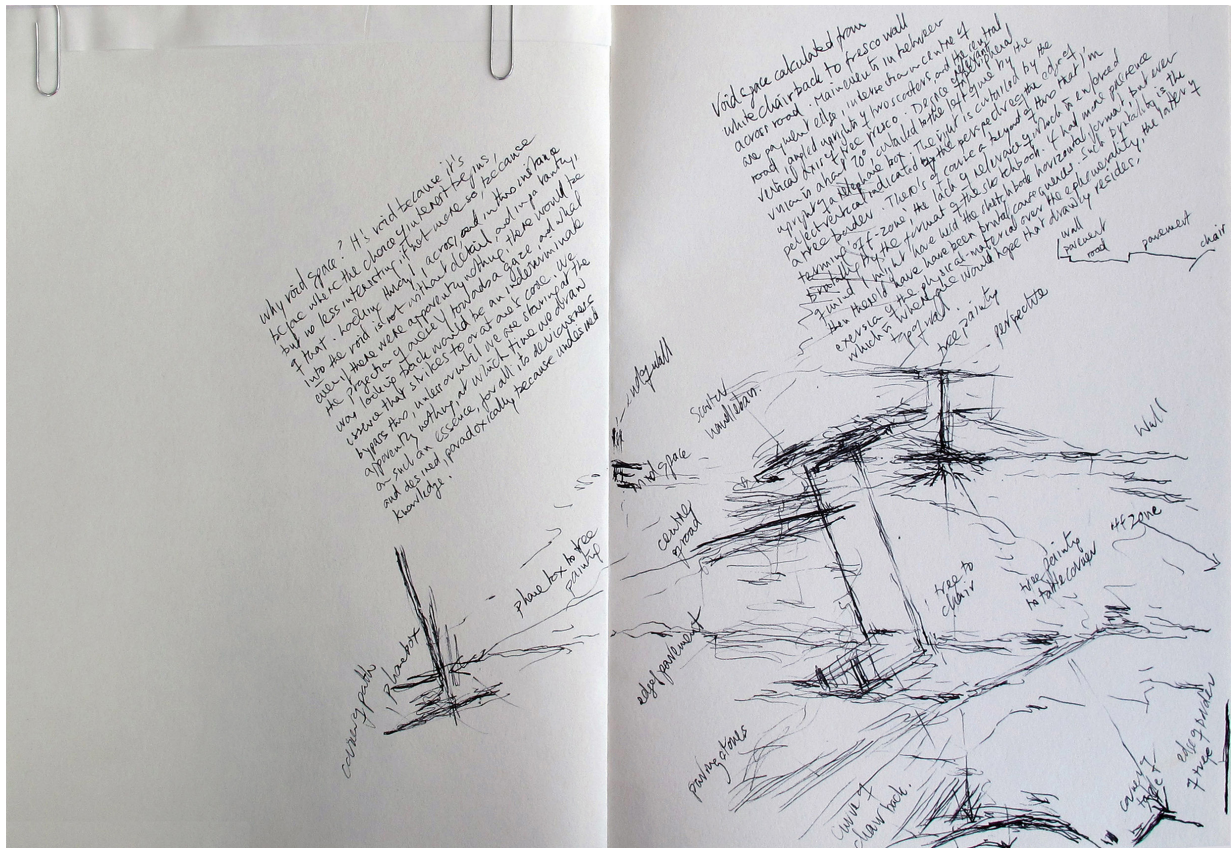 Why void space? It's void because it's
before where the choice of interest begins,
but no less interesting, if not more so, because
of that. Looking through, across, and in this instance
into the void is not without detail, and importantly,
even if there were apparently nothing, there would be
the projection of oneself towards a gaze, and what
was looking back would be an indeterminate
essence that strikes to our one's core. We
bypass this, unless or until we are staring at the
apparently nothing, at which time we draw
on such an essence, for all its deviousness
and desired, paradoxically, because undesired
knowledge.
phone box to tree
painting
phonebox
corner of path
Void space calculated from
white chair back to fresco wall
across road. Main events in between
are pavement edge, intersection centre of
road, angled uprights of two scooters and the central,
vertical axis of tree fresco. Desire of peripheral
vision is a half 70° curtailed to the left again by the
upright of a telephone box. The right is curtailed by the
perfect vertical indicated by the perspective of the edge of
a tree border. There is of course a beyond of this that I'm
terming 'off-zone', the lack of relevance of which is enforced
brutally by the format of the sketchbook. If I had more presence
of mind I might have held the sketchbook horizontal format, but even
then there'd have been brutal consequences. Such brutality is the
exercise of the physical-material over the ephemerality of the latter of
which is where one would hope that drawing resides.
wall
pavement
road
pavement
chair
top of road
tree painting
perspective
edge of wall
scooter
handlebars
Wall
mid space
centre
of road
off zone
tree to
chair
tree painting
to table corner
edge of pavement
paving stones
curve of
chair back.
corner of
table
edge of border
of tree